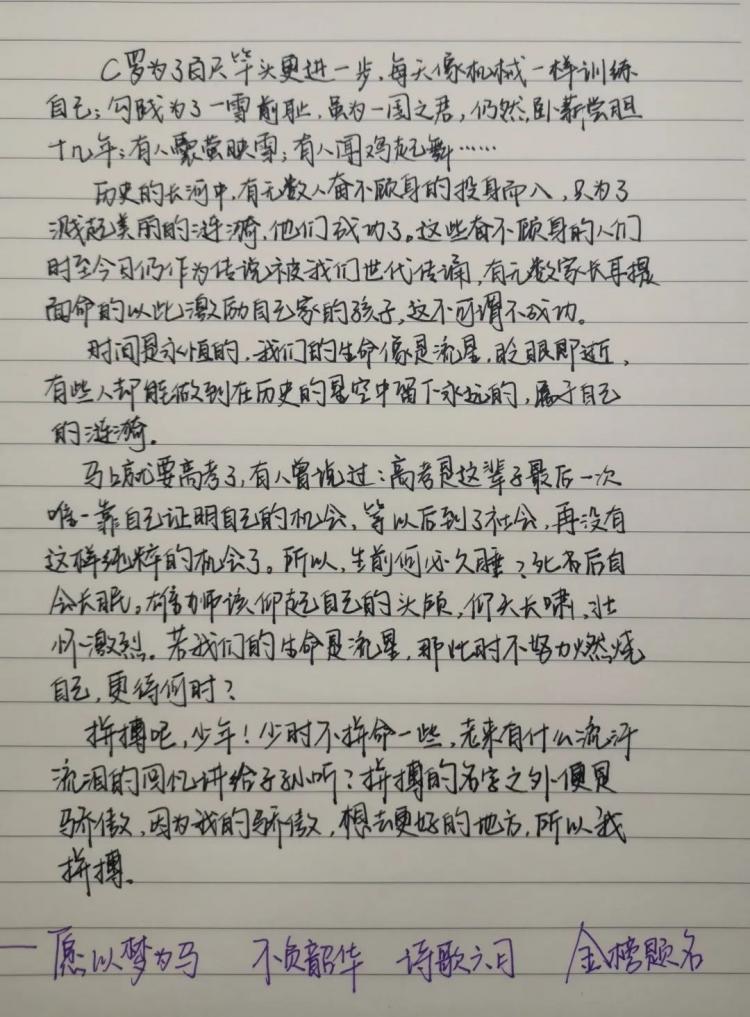 C罗为了百尺竿头更进一步，每天像机械一样训练
自己；勾践为了一雪前耻，虽为一国之君，仍然卧薪尝胆
十几年；有人囊萤映雪；有人闻鸡起舞……
历史的长河中，有无数人奋不顾身的投身而入，只为了
溅起美丽的涟漪，他们成功了。这些奋不顾身的人们
时至今日仍作为传说被我们世代传诵，有无数家长耳提
面命的以此激励自己家的孩子，这不可谓不成功。
时间是永恒的，我们的生命像是流星，眨眼即逝，
有些人却能做到在历史的星空中留下永远的，属于自己
的涟漪。
马上就要高考了，有人曾说过：高考是这辈子最后一次
唯一靠自己证明自己的机会，等以后到了社会，再没有
这样纯粹的机会了。所以，生前何必久睡？死后自
会长眠。该仰起自己的头颅，仰天长啸，壮
怀激烈。若我们的生命是流星，那此时不努力燃烧
自己，更待何时？
拼搏吧，少年！少时不拼命一些，老来有什么流汗
流泪的回忆讲给子孙听？拼搏的名字之外便是
骄傲，因为我的骄傲，想去更好的地方，所以我
拼搏。
愿以梦为马 不负韶华 诗歌六月 金榜题名